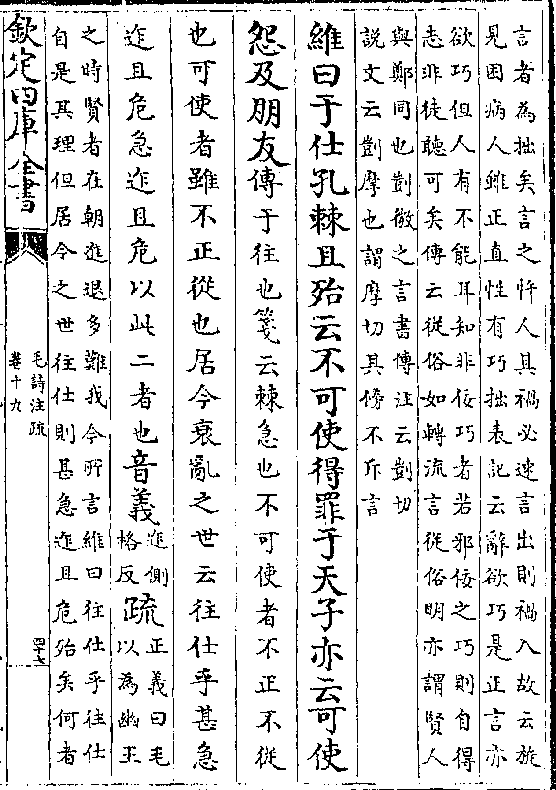 言者為拙矣言之忤人其禍必速言出則禍入故云旋
見困病人雖正直性有巧拙表記云辭欲巧是正言亦
欲巧但人有不能耳知非佞巧者若邪佞之巧則自得
志非徒聽可矣傳云從俗如轉流言從俗明亦謂賢人
與鄭同也剴微之言書傳注云剴切
説文云剴摩也謂摩切其傍不斥言
維曰于仕孔棘且殆云不可使得罪于天子亦云可使
怨及朋友傳于往也箋云棘急也不可使者不正不從
也可使者雖不正從也居今衰亂之世云往仕乎甚急
迮且危急迮且危以此二者也音義迮側
格反疏正義曰毛
以為幽王
之時賢者在朝進退多難我今所言維曰往仕乎往仕
自是其理但居今之世往仕則甚急迮且危殆矣何者
欽定四庫全書
毛詩注疏
卷十九
四十七